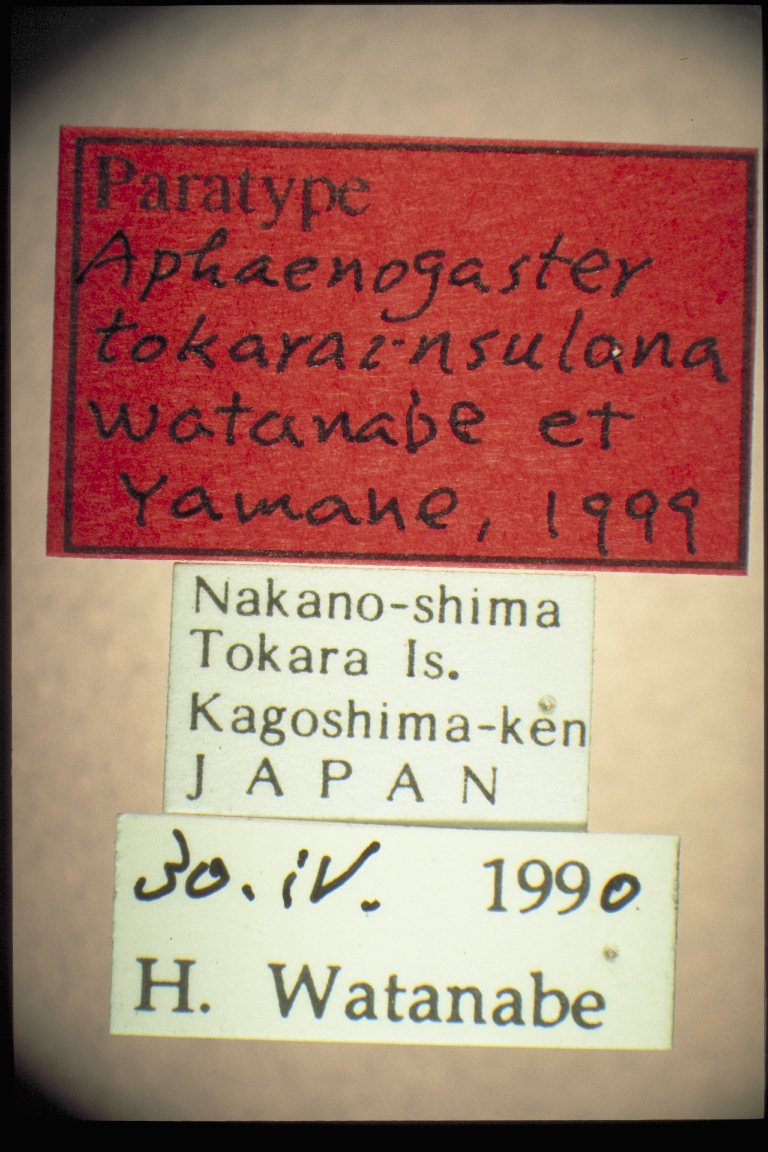 Paratype
Aphaenogaster
tokarainsulana
Watanabe et
Yamane, 1999
Nakano-shima
Tokara Is.
Kagoshima-ken
JAPAN
30. iV. 1990
H. Watanabe